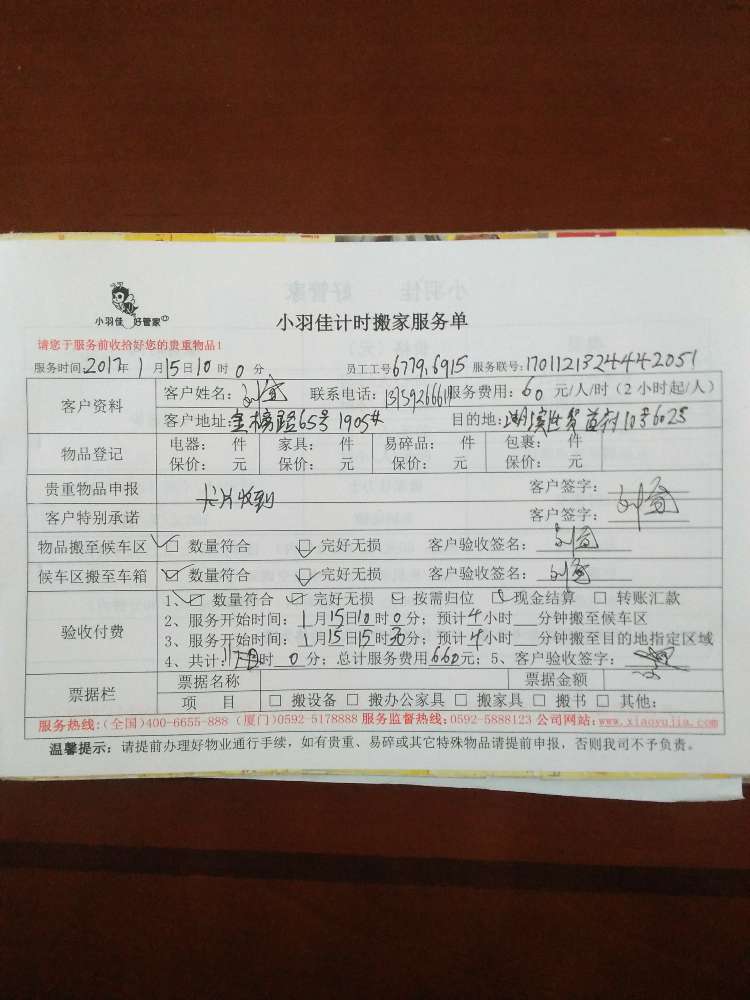 小羽佳 好管家
小羽佳计时搬家服务单
请您于服务前收拾好您的贵重物品!
服务时间:2017年1月15日10时0分 员工工号6779.6915 服务联号:1701121324442051
客户资料 客户姓名: 联系电话: 服务费用:60元/人/时(2小时起/人)
客户地址:金榜路65号1905# 目的地:
物品登记 电器: 件 家具: 件 易碎品: 件 包裹: 件
保价: 元 保价: 元 保价: 元 保价: 元
贵重物品申报 卡片收到 客户签字:
客户特别承诺 客户签字:
物品搬至候车区 □ 数量符合 □ 完好无损 客户验收签名:
候车区搬至车箱 □ 数量符合 □ 完好无损 客户验收签名:
验收付费 1、□ 数量符合 □ 完好无损 □ 按需归位 □ 现金结算 □ 转账汇款
2、服务开始时间:1月15日10时0分;预计4小时__分钟搬至候车区
3、服务开始时间:1月15日15时30分;预计4小时__分钟搬至目的地指定区域
4、共计: 时0分;总计服务费用660元;5、客户验收签字:
票据栏 票据名称 票据金额
项 目 □ 搬设备 □ 搬办公家具 □ 搬家具 □ 搬书 □ 其他:
服务热线:(全国)400-6655-888 (厦门)0592-5178888 服务监督热线:0592-5888123 公司网站:www.xiaoyujia.com
温馨提示:请提前办理好物业通行手续,如有贵重、易碎或其它特殊物品请提前申报,否则我司不予负责。